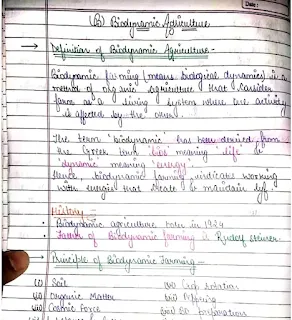 Date :
(B) Biodynamic Agriculture
→ Definition of Biodynamic Agriculture -
Biodynamic farming (means biological dynamics) is a
method of organic agriculture that consider
farm as a living system where one activity
is affected by the other.
The term 'biodynamic' has been derived from
the Greek word 'bios' meaning 'life' &
'dynamic' meaning 'energy'.
Hence, biodynamic farming indicates working
with energies that create & maintain life.
History -
Biodynamic agriculture in 1924
Father of Biodynamic farming is Rudolf steiner.
→ Principle of Biodynamic Farming -
(i) Soil
(ii) Organic Matter
(iii) Cosmic Force
Crop rotation
Preparations